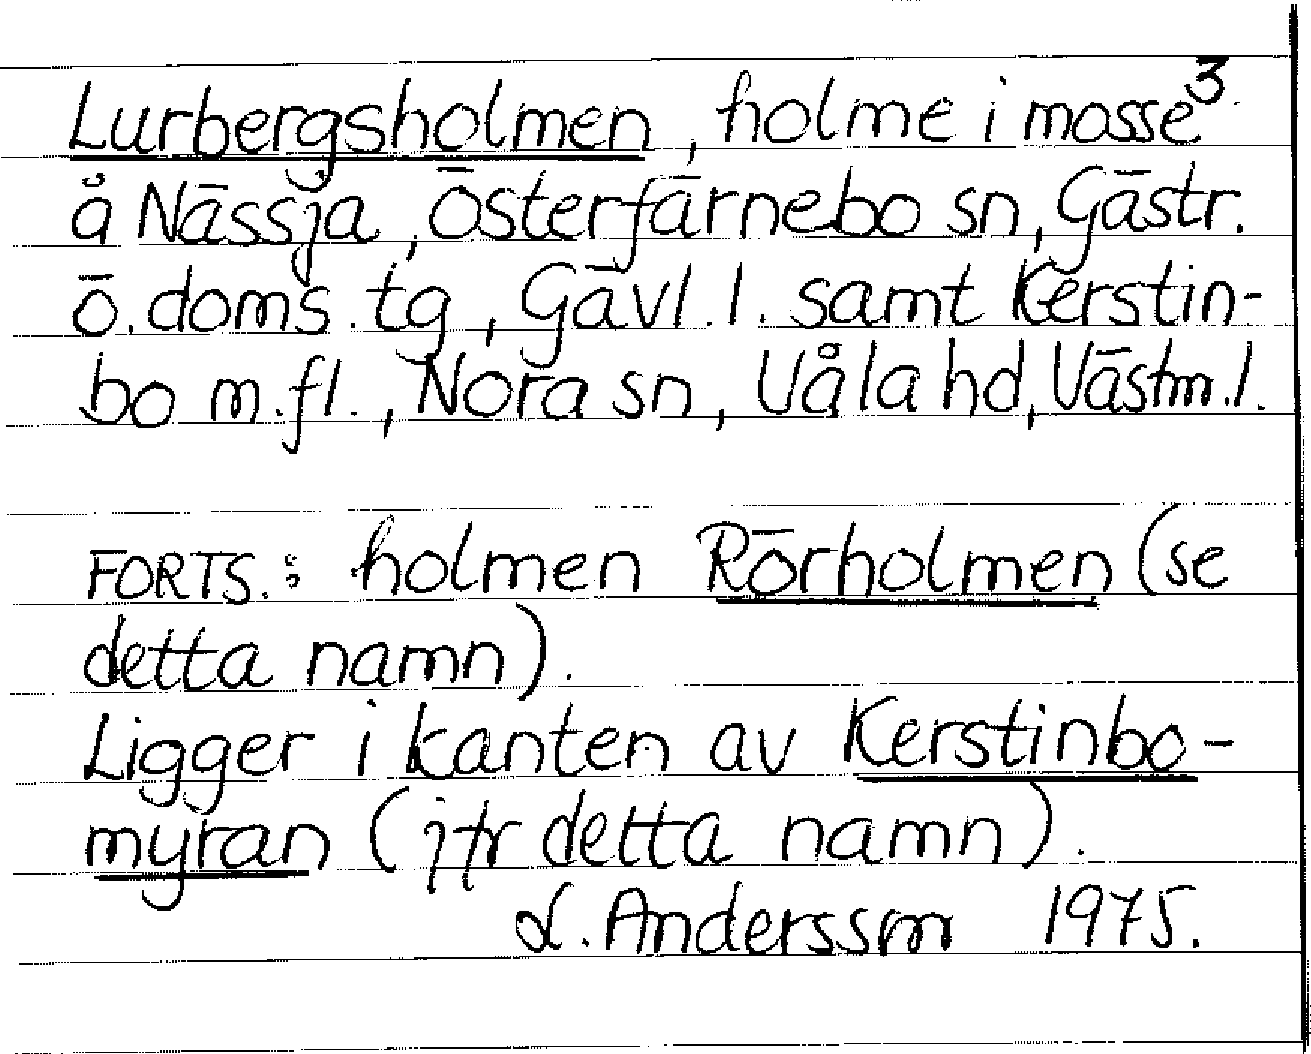 Lurbergsholmen, holme i mosse 3.
å Nässja, Österfärnebo sn, Gästr.
ö. doms. tg, Gävl. l. samt Kerstin-
bo m.fl., Nora sn, Våla hd, Västm. l.
FORTS.: holmen Rörholmen (se
detta namn).
Ligger i kanten av Kerstinbo-
myran (jfr detta namn).
L. Andersson 1975.